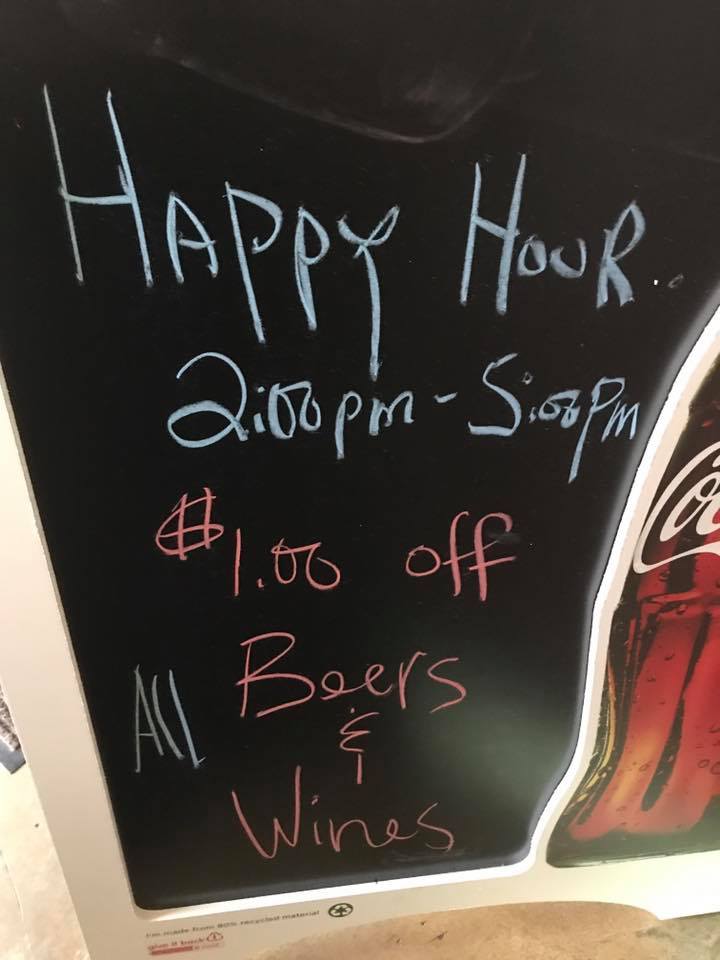 HAPPY HOUR.
2:00pm - 5:00pm
$1.00 off
All Beers
&
Wines
I'm made from 80% recycled material
give it back